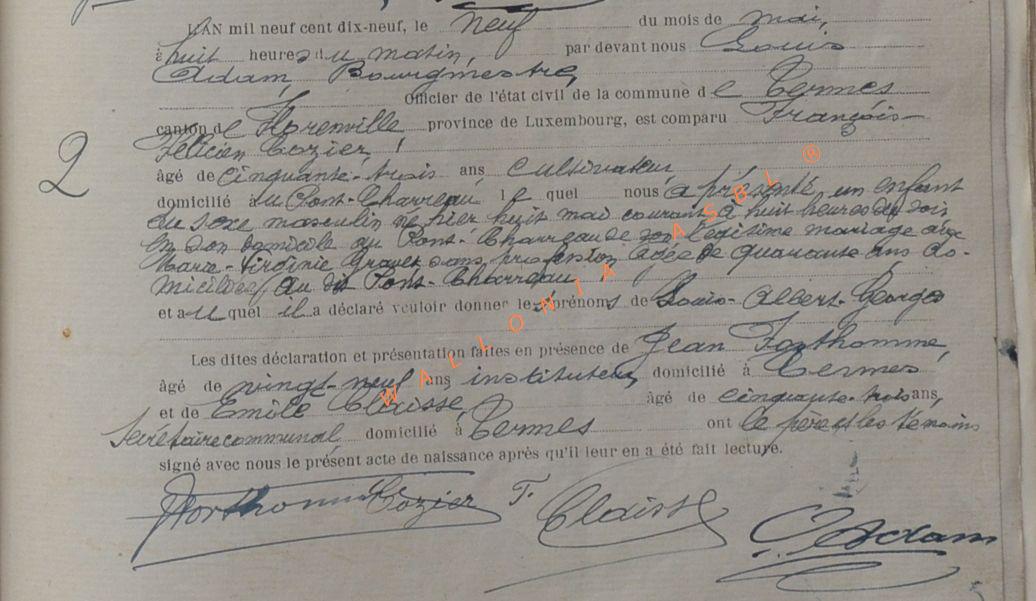 L'AN mil neuf cent dix-neuf, le neuf du mois de mai,
à huit heures du matin, par devant nous Louis
Adam, Bourgmestre,
Officier de l'état civil de la commune de Termes
canton de Florenville province de Luxembourg, est comparu François-
Félicien Cozier,
âgé de cinquante-trois ans cultivateur
domicilié au Pont-Charreau le quel nous a présenté un enfant
du sexe masculin né hier huit mai courant à huit heures du soir
en son domicile au Pont-Charreau de son légitime mariage avec
2
Marie-Virginie sans profession âgée de quarante ans do-
miciliée au dit Pont-Charreau
et au quel il a déclaré vouloir donner les prénoms de Louis-Albert-Georges
Les dites déclaration et présentation faites en présence de Jean Forthomme,
âgé de vingt-neuf ans instituteur domicilié à Termes
et de Emile Claisse, âgé de cinquante-trois ans,
secrétaire communal domicilié à Termes ont le père et les témoins
signé avec nous le présent acte de naissance après qu'il leur en a été fait lecture.
Forthomme Cozier F. Claisse Adam
WALLONIA ASBL ®